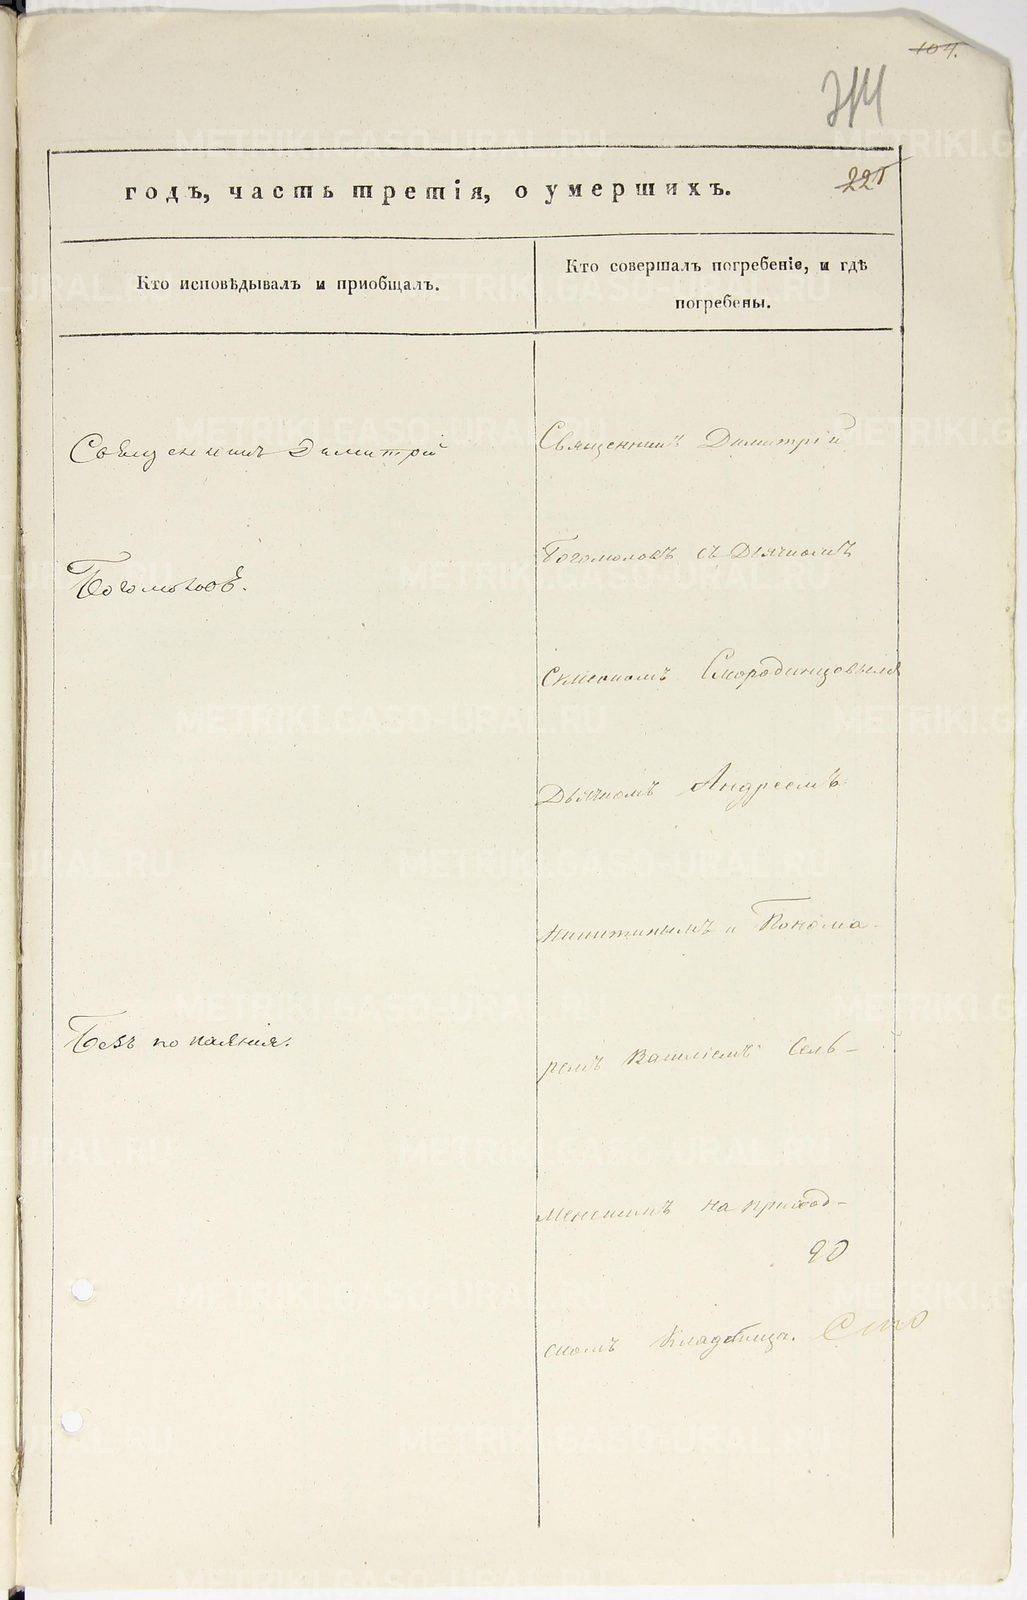 104.
314
годъ, часть третія, о умершихъ.
221
Кто исповѣдывалъ и приобщалъ.
Кто совершалъ погребеніе, и гдѣ
погребены.
Священникъ Димитрій
Богомоловъ.
Безъ покаянія.
Священникъ Димитрій
Богомоловъ съ Дьячкомъ
Симеономъ Смородинцовымъ
Дьячкомъ Андреемъ
Никитинымъ и Понома-
ремъ Василіемъ Сель-
менскимъ на приход-
скомъ Кладбище.
METRIKI.GASO-URAL.RU